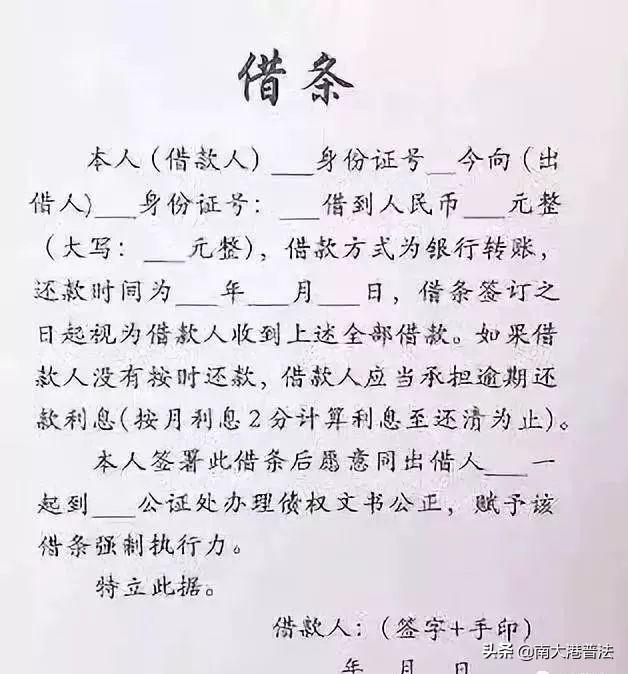 借条
本人(借款人)___身份证号__今向(出
借人)___身份证号：___借到人民币___元整
(大写：___元整)，借款方式为银行转账，
还款时间为___年___月___日，借条签订之
日起视为借款人收到上述全部借款。如果借
款人没有按时还款，借款人应当承担逾期还
款利息(按月利息2分计算利息至还清为止)。
本人签署此借条后愿意同出借人___一
起到___公证处办理债权文书公正，赋予该
借条强制执行力。
特立此据。
借款人：(签字+手印)
年 月 日
头条 @南大港普法